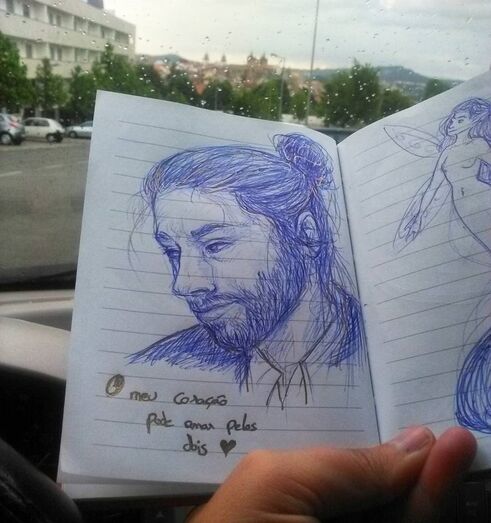 O meu coração
pode amar pelos
dois ♥